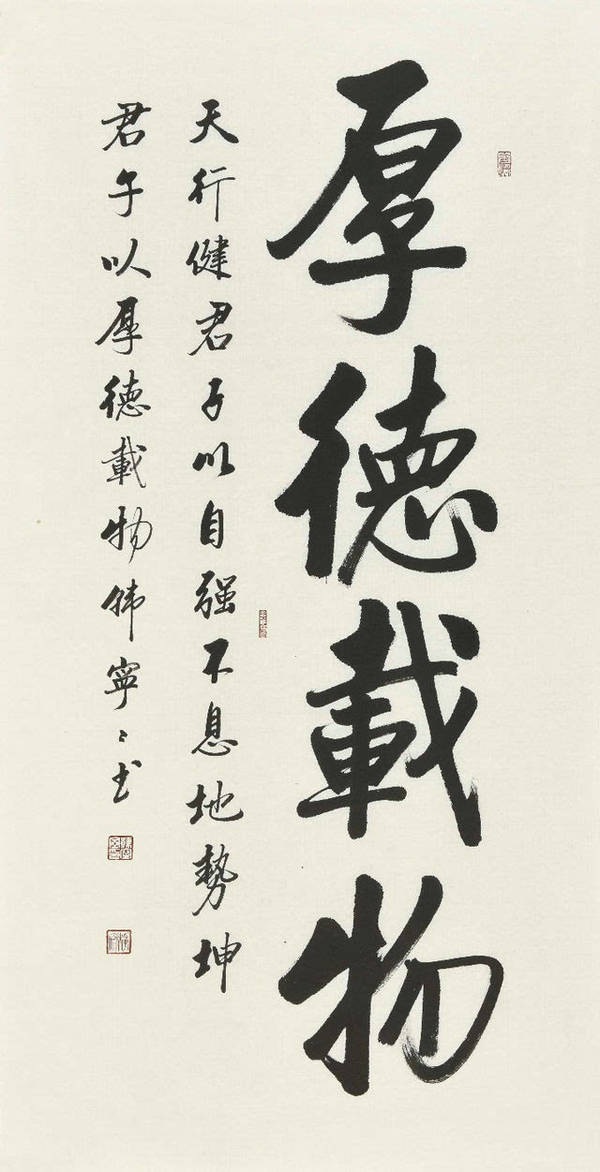 厚德載物
天行健君子以自强不息地勢坤
君子以厚德載物韩寧〻书